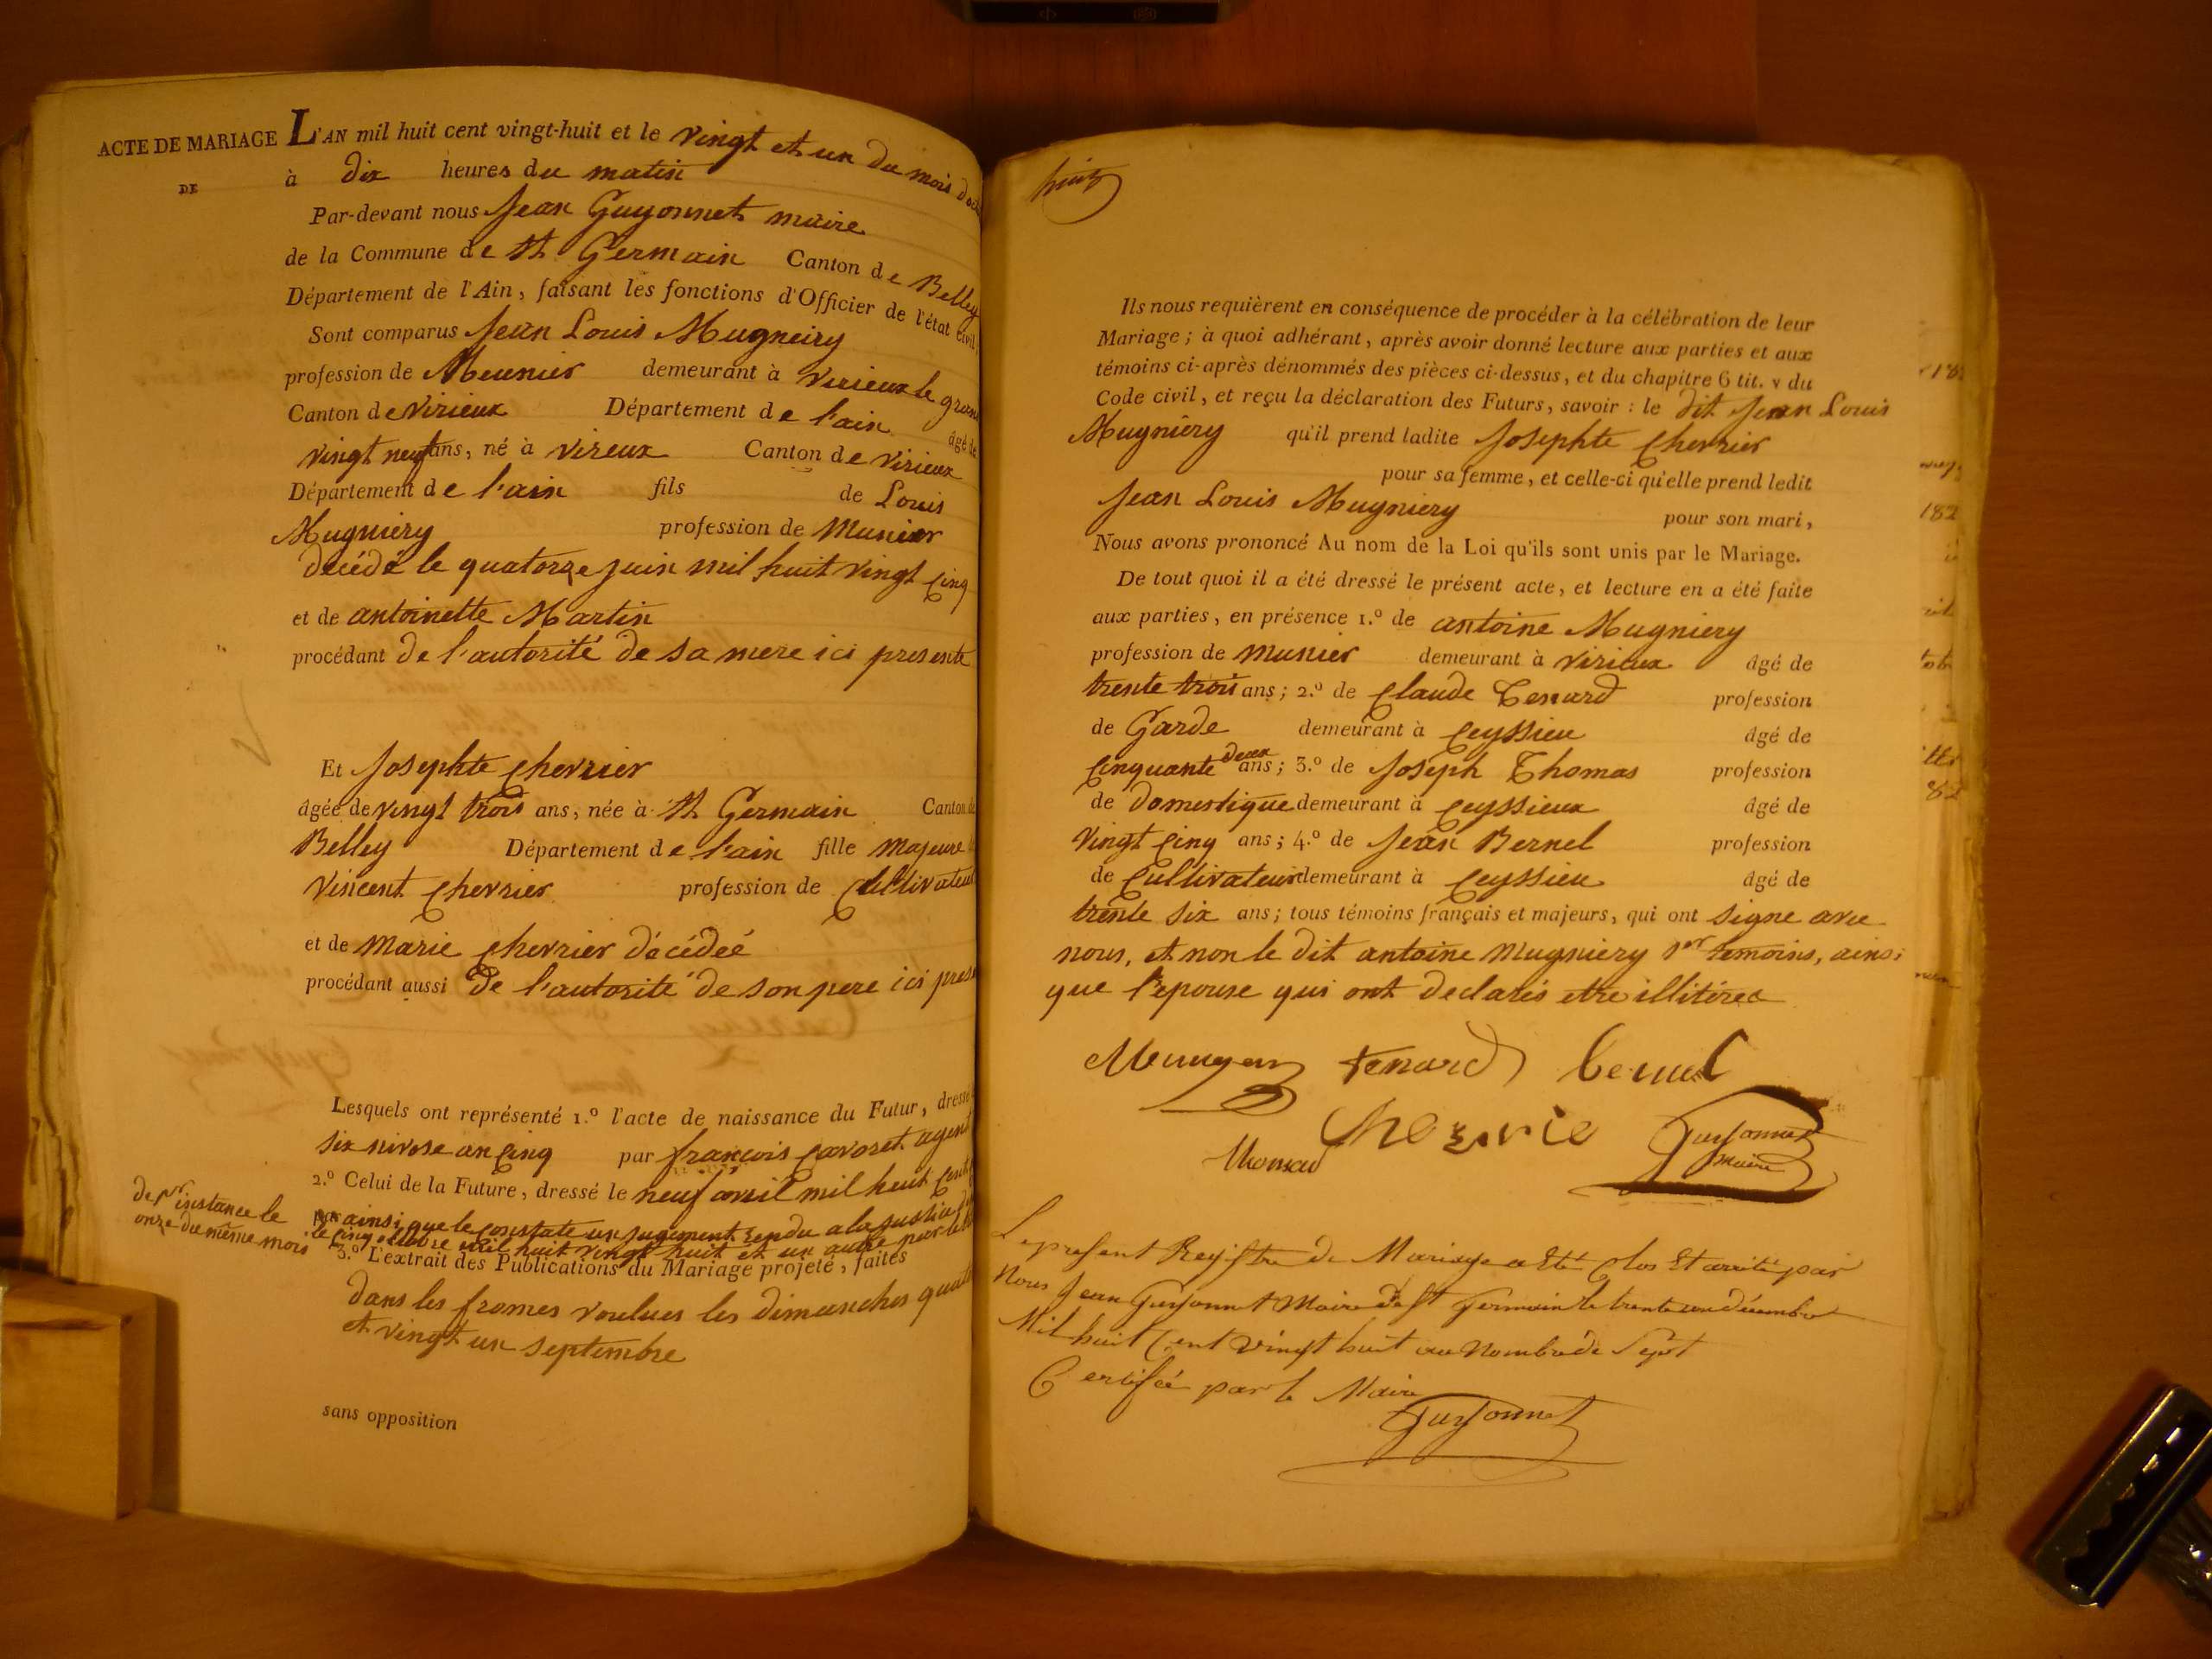 ACTE DE MARIAGE
DE
L'AN mil huit cent vingt-huit et le vingt et un du mois
à dix heures du matin
Par-devant nous Jean Guyonnet maire
de la Commune de St Germain Canton de Belley
Département de l'Ain, faisant les fonctions d'Officier de l'état civil.
Sont comparus Jean Louis Mugneiry
profession de Meunier demeurant à virieux le gran
Canton de Virieux Département de l'ain âgé de
vingt neuf ans, né à vireux Canton de virieux
Département de l'ain fils de Louis
Mugniery profession de Munier
décédé le quatorze juin mil huit vingt cinq
et de antoinette Martin
procédant de l'autorité de sa mere ici presente
Et Josephte Chevrier
âgée de vingt trois ans, née à St Germain Canton de
Belley Département de l'ain fille majeure
Vincent Chevrier profession de Cultivateur
et de marie Chevrier décédeé
procédant aussi de l'autorité de son pere ici prese
Lesquels ont représenté 1.º l'acte de naissance du Futur, dressé
six nivose an cinq par françois Cavoret agent
2.º Celui de la Future, dressé le neuf avril mil huit Cent
ainsi que le Constate un jugement rendu a la justice
de pr instance le
onze du même mois
le cinq mil huit vingt huit et un autre par le
3.º L'extrait des Publications du Mariage projeté, faites
dans les fromes voulues les dimanches
et vingt un septembre
sans opposition
huit
Ils nous requièrent en conséquence de procéder à la célébration de leur
Mariage; à quoi adhérant, après avoir donné lecture aux parties et aux
témoins ci-après dénommés des pièces ci-dessus, et du chapitre 6 tit. v du
Code civil, et reçu la déclaration des Futurs, savoir : le dit Jean Louis
Mugniery qu'il prend ladite Josephte Chevrier
pour sa femme, et celle-ci qu'elle prend ledit
Jean Louis Mugniery pour son mari,
Nous avons prononcé Au nom de la Loi qu'ils sont unis par le Mariage.
De tout quoi il a été dressé le présent acte, et lecture en a été faite
aux parties, en présence 1.º de antoine Mugniery
profession de munier demeurant à virieux âgé de
trente trois ans; 2.º de Claude Tenard profession
de Garde demeurant à Ceyssieu âgé de
Cinquante deux ans; 3.º de Joseph Thomas profession
de domestique demeurant à Ceyssieux âgé de
vingt Cinq ans; 4.º de Jean Bernel profession
de Cultivateur demeurant à Ceyssieu âgé de
trente six ans; tous témoins français et majeurs, qui ont signe avec
nous, et non le dit antoine Mugniery 1er temoins, ainsi
que l'epouse qui ont declarés etre illitérés
tenard
Thomas
Guyonnet
maire
Le present Registre de Mariage a Eté Clos Et arrêté par
Nous Jean Guyonnet Maire de St Germain le trente un décembre
Mil huit Cent vingt huit au Nombre de Sept
Certifié par le Maire
Guyonnet